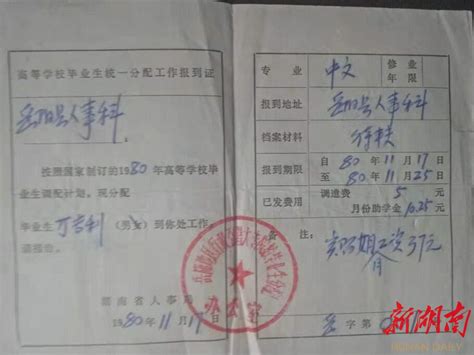 高等学校毕业生统一分配工作报到证
岳阳县人事科：
按照国家制订的1980年高等学校毕
业生调配计划，现分配
毕业生 (男女) 到你处工作，
请接洽。
湖南省人事局
1980年11月17日
专业 中文 修业年限
报到地址 岳阳县人事科
档案材料 待转
报到期限 自80年11月17日
至80年11月25日
已发费用 调遣费 5 元
月份的学金 10.25元
备注：
工资37元
月
字第
办公室
新湖南
HUNAN DAILY